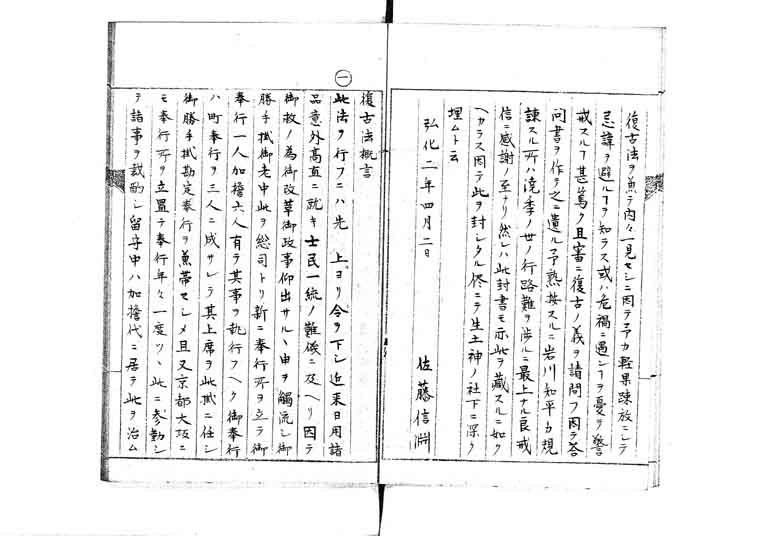 復古法ヲ魚テ内々一見セシニ因テ予カ軽果疎放ニシテ
忌諱ヲ避ルヿヲ知ラス或ハ危禍ニ遇ンヿヲ憂ヲ警
戒スルヿ甚篤ク且審ニ復古ノ義ヲ請問フ因テ答
問書ヲ作リ之ニ遺ル予熟按スルニ岩川知平カ規
諌スル所ハ澆季ノ世ノ行路難ヲ渉ルニ最上ナル良戒
信ニ感謝ノ至ナリ然レハ此封書モ亦此ヲ蔵スルニ如ク
ヘカラス因テ此ヲ封シタル侭ニテ生土神ノ社下ニ深ク
埋ムト云
弘化二年四月二日
佐藤信淵
一
復古法概言
此法ヲ行フニハ先 上ヨリ令ヲ下シ近来日用諸
品意外高直ニ就キ士民一統ノ難儀ニ及ヘリ因テ
御救ノ為御改革御政事仰出サルヽ由ヲ觸流シ御
勝手掛御老中此ヲ総司トリ新ニ奉行所ヲ立テ御
奉行一人加擔六人有テ其事ヲ執行フヘク御奉行
ハ町奉行ヲ三人ニ成サレテ其上席ヲ此掛ニ任シ
御勝手掛勘定奉行ヲ魚帯セシメ且又京都大坂ニ
モ奉行所ヲ立置テ奉行年々一度ツヽ此ニ参勤シ
テ諸事ヲ裁酌シ留守中ハ加擔代ニ居テ此ヲ治ム